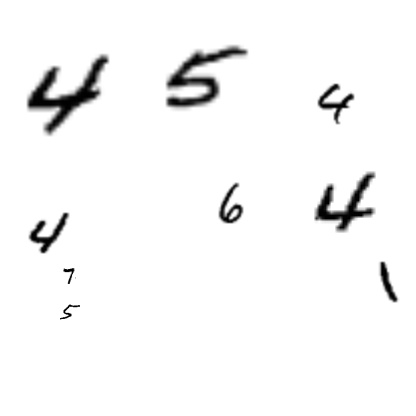 4 5 4
4 6 4
7 1
5